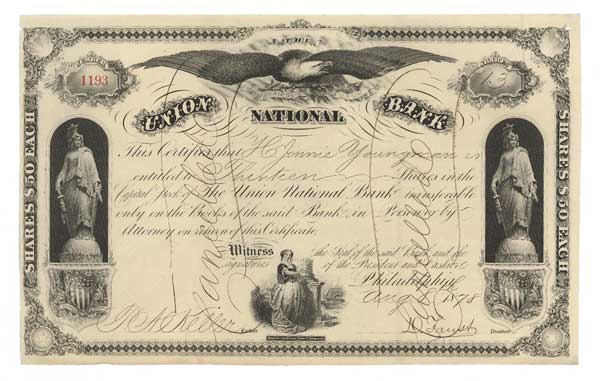 NUMBER
SHARES
1193
13
UNION NATIONAL BANK
This Certifies that H Jennie Youngman is
entitled to Thirteen Shares in the
Capital Stock of The Union National Bank transferable
only on the Books of the said Bank in Person or by
Attorney on return of this Certificate.
Witness the Seal of the said Bank and the
signatures of the President and Cashier.
Philadelphia
Aug 1878
Cashier
D Faust President
SHARES $50 EACH
SHARES $50 EACH
Cancelled
Cancelled